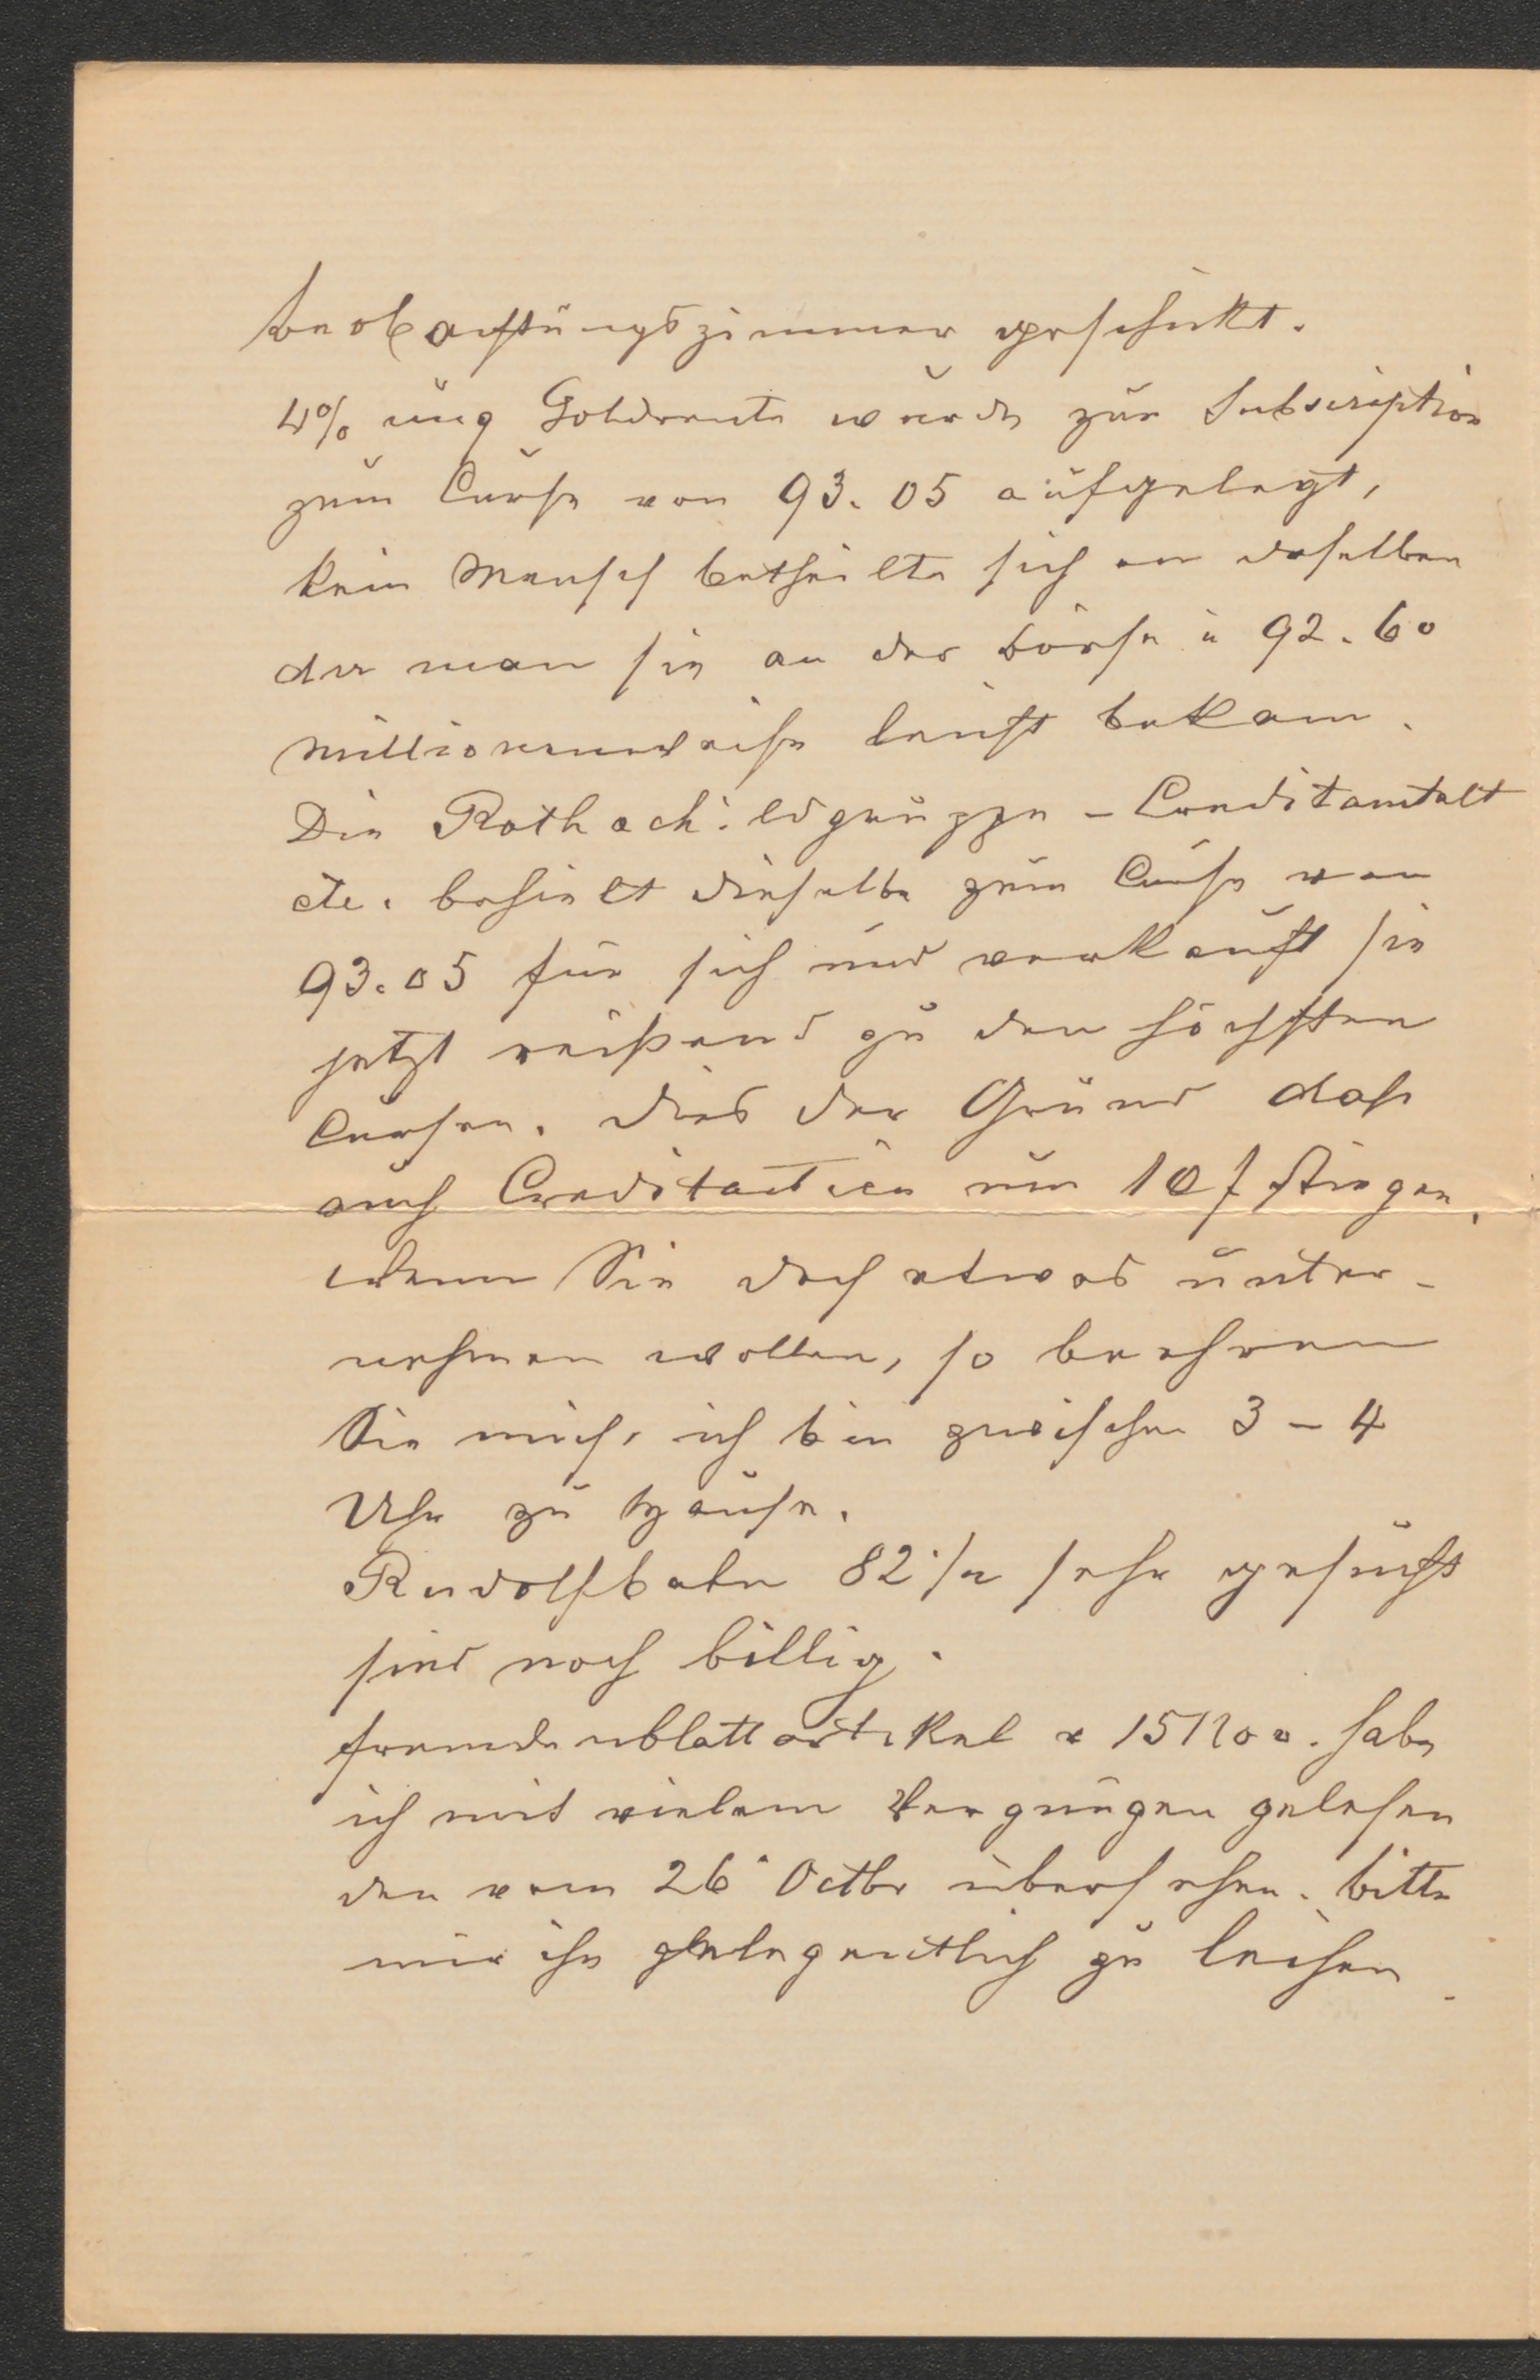 Beobachtungszimmer geschickt.
4% ung Goldrente wurde zur Subscription
zum Curse von 93.05 aufgelegt,
kein Mensch betheilte sich an deselben
da man sie an der Börse à 92.60
millionenweise leicht bekam.
Die Rothschildgruppe – Creditanstalt
etc. behielt dieselbe zum Curse von
93.05 für sich und verkauft sie
jetzt reißend zu den höchsten
Cursen. Dies der Grund daß
auch Creditactien um 10 f stiegen.
Wenn Sie doch etwas unter-
nehmen wollen, so beehren
Sie mich, ich bin zwischen 3 – 4
Uhr zu Hause.
Rudolfbahn 82 1/2 sehr gesucht
sind noch billig.
Fremdenblattartikel v 15 Nov. habe
ich mit vielem Vergnügen gelesen
den vom 26 Octbr übersehen. Bitte
mir ihn gelegentlich zu leihen.